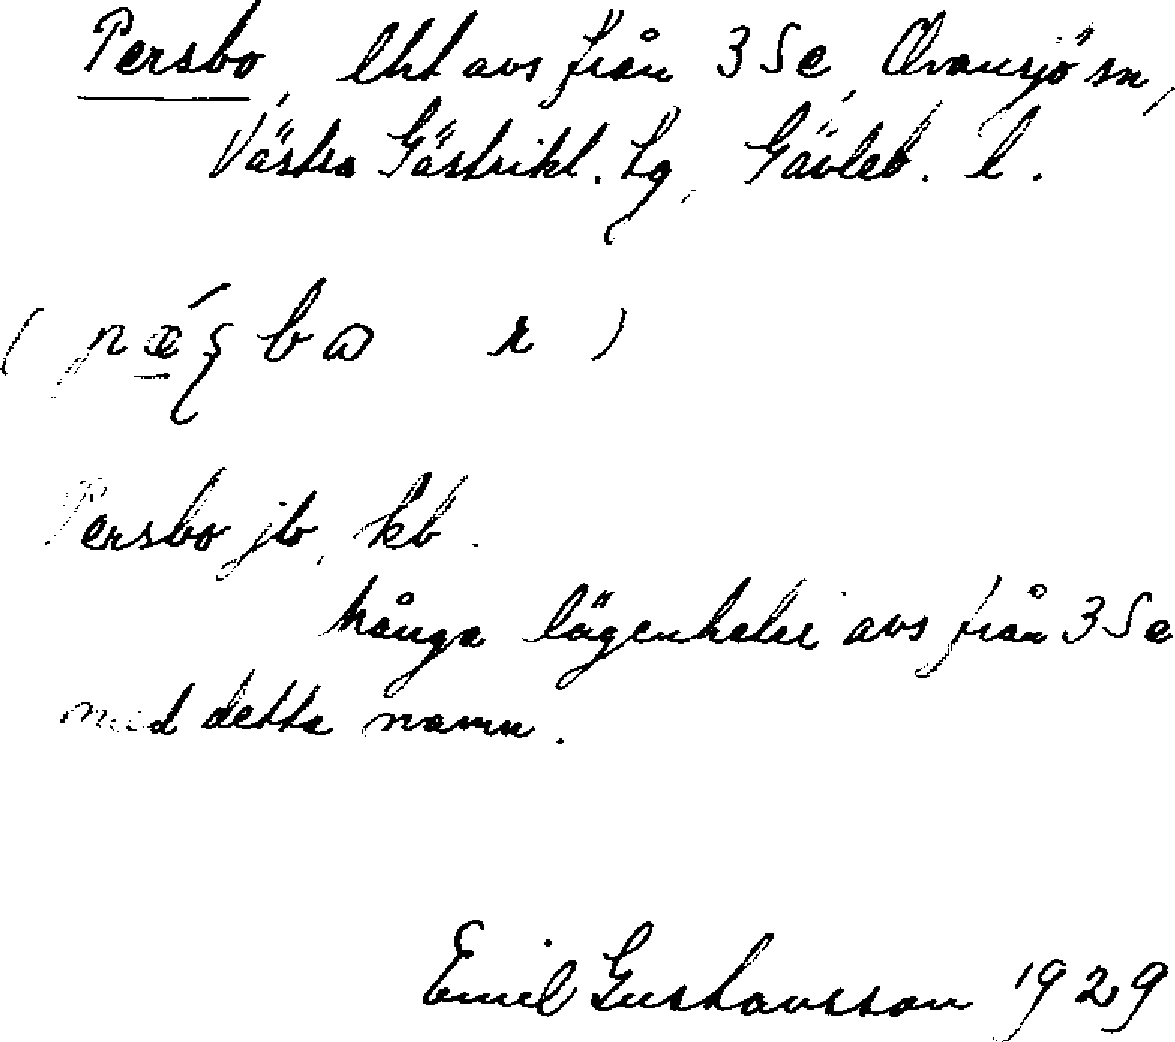 Persbo, lht avs från 3 Se, Ovansjö sn,
Västra Gästrikl. tg, Gävleb. l.
Persbo jb, kb.
Många lägenheter avs från 3 Se
med detta namn.
Emil Gustavsson 1929